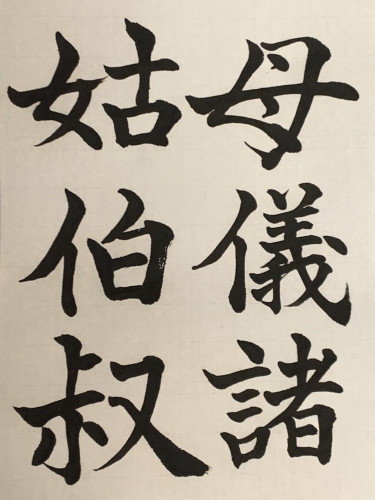 母儀諸
姑伯叔